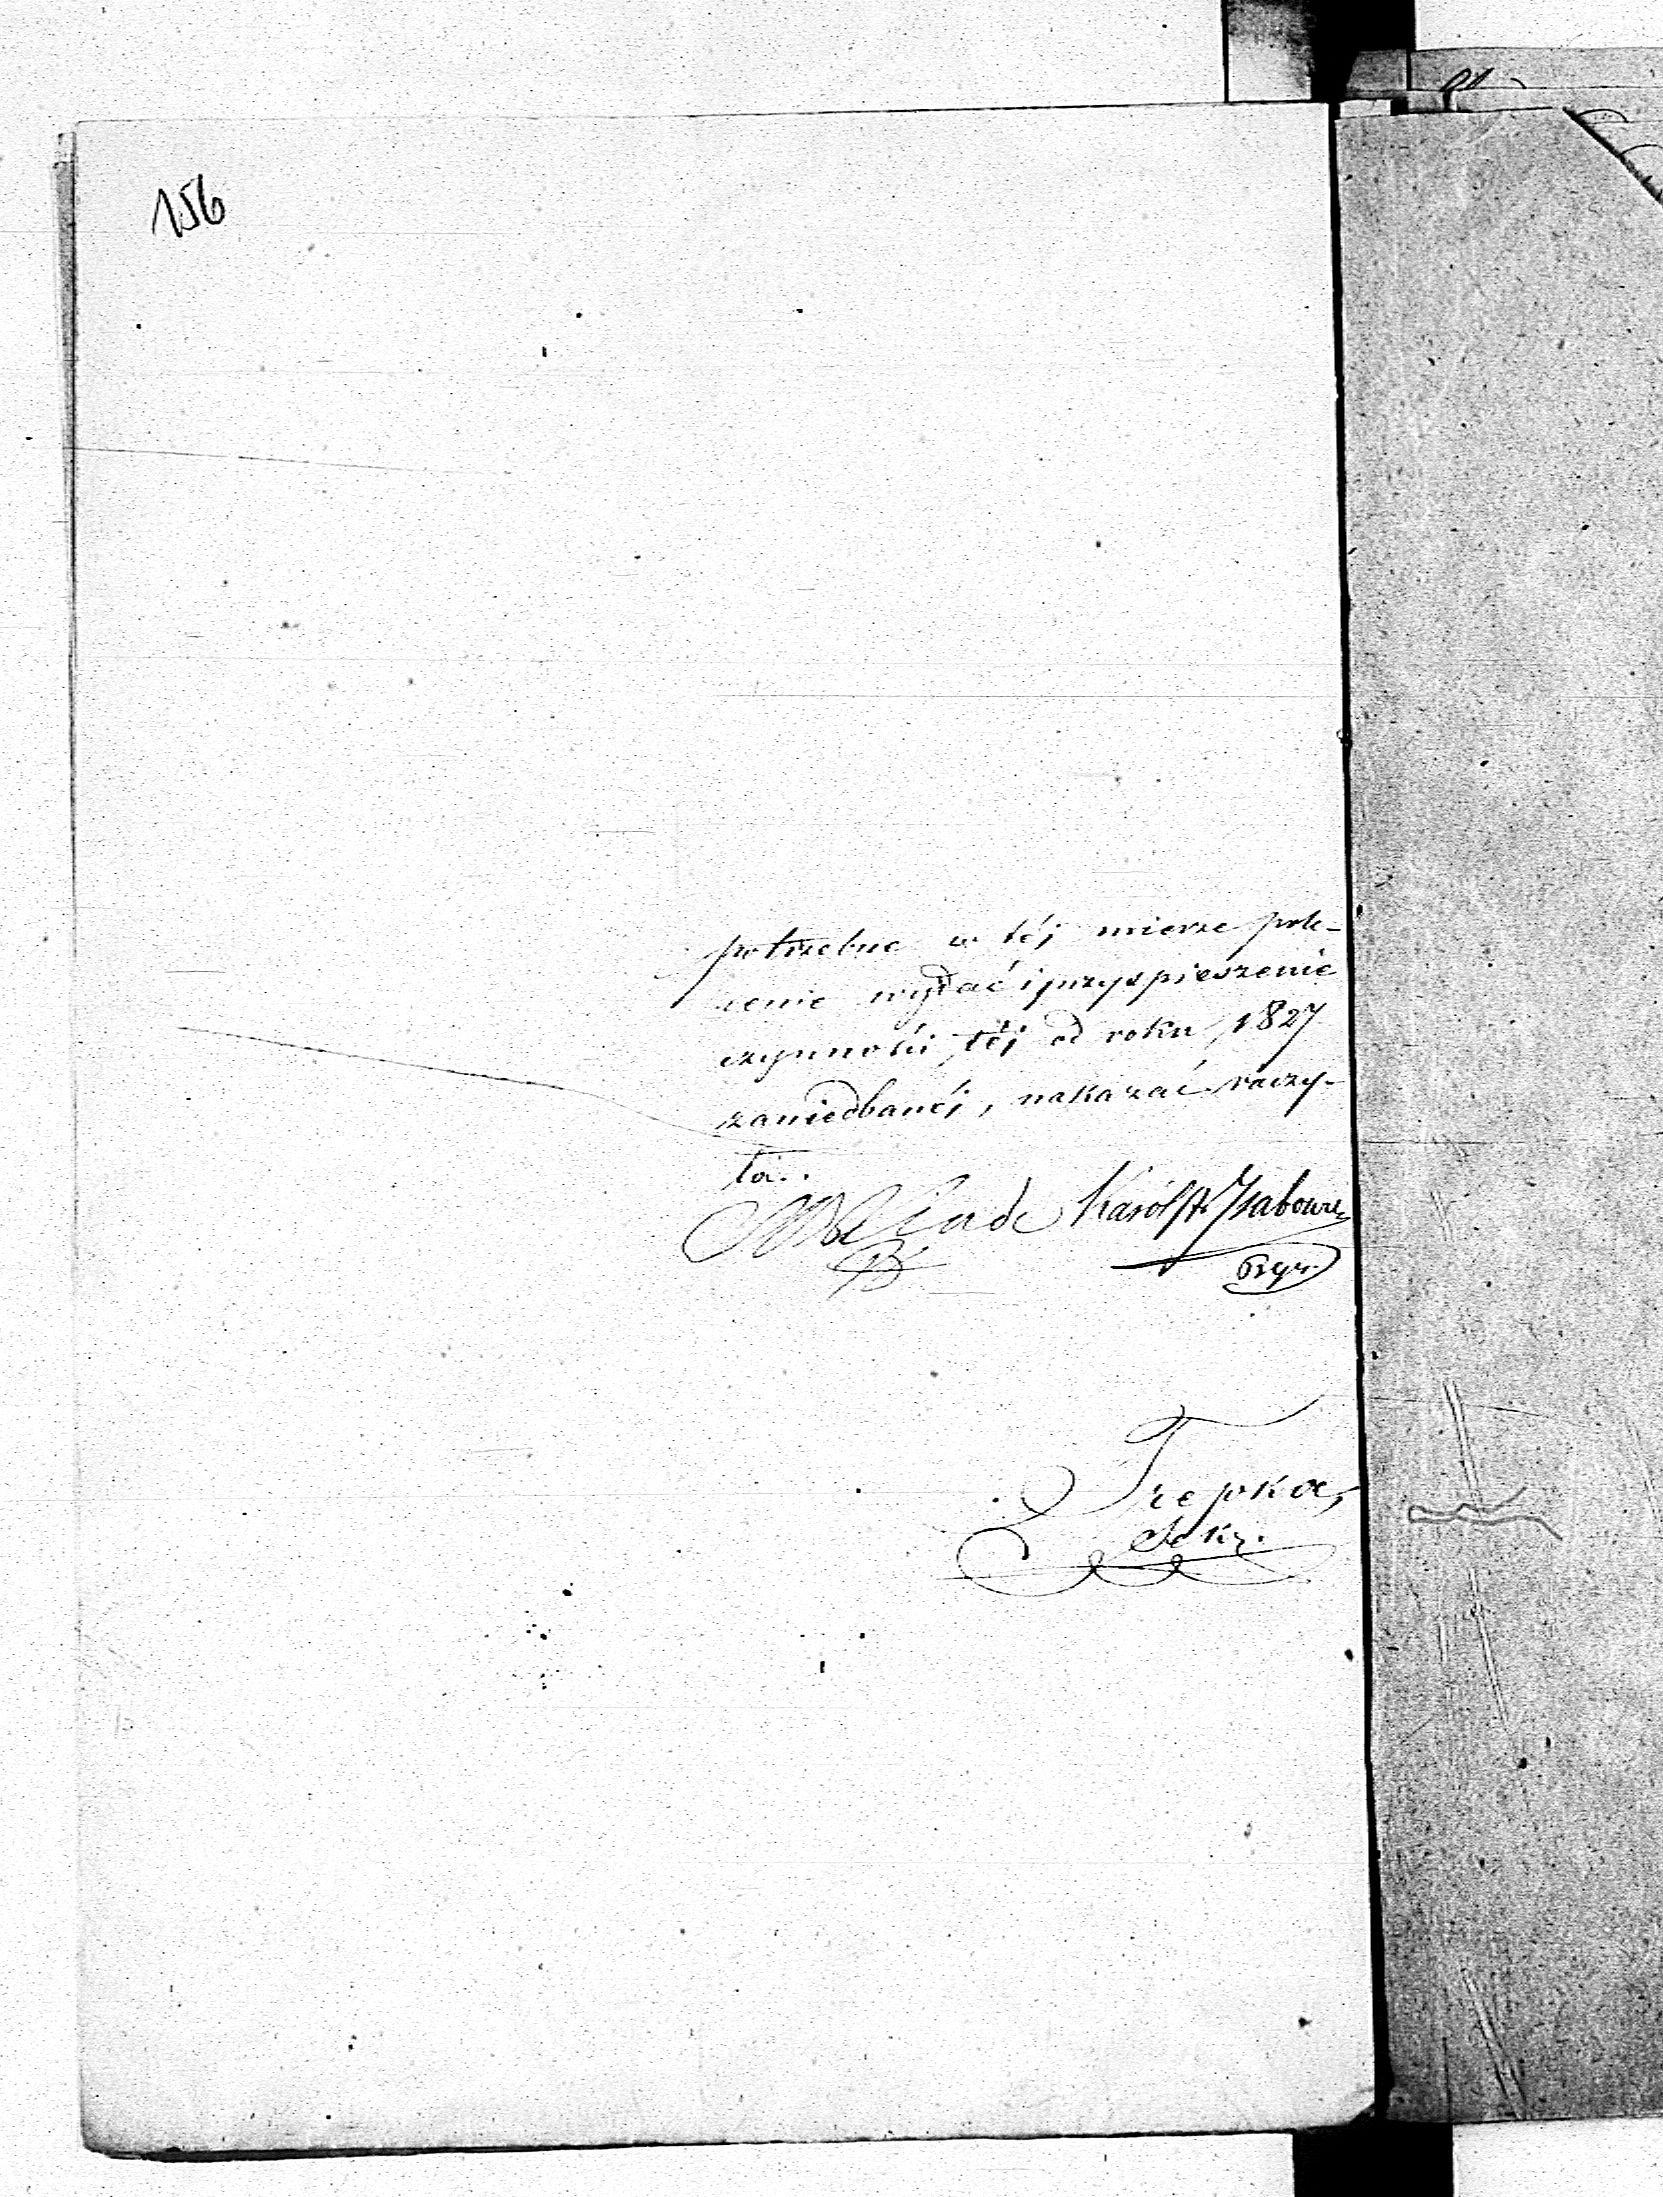 156
potrzebne w téj mierze pole-
cenie wydać i przyspieszenie
czynności téj od roku 1827
zaniedbanéj, nakazać raczy-
ła.
Karól
Trepka,
Sekr.